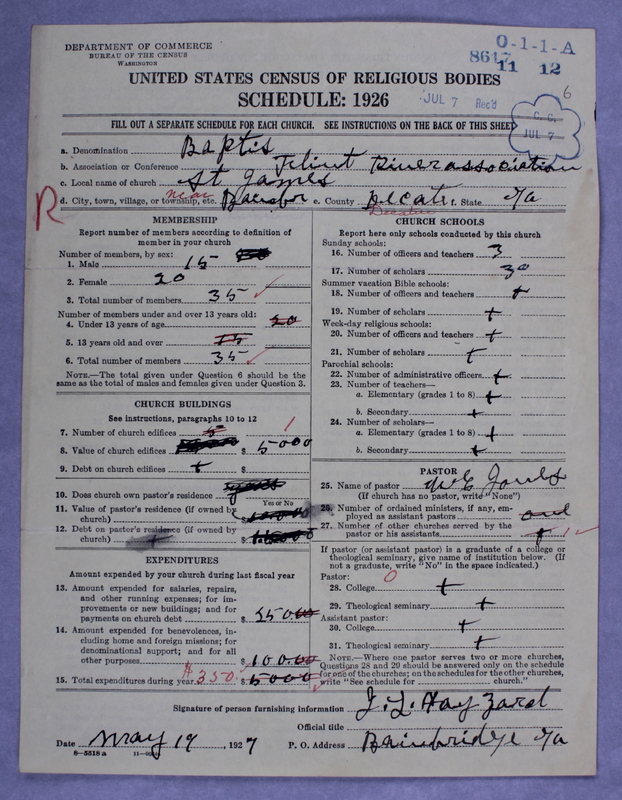 DEPARTMENT OF COMMERCE
BUREAU OF THE CENSUS
WASHINGTON
0-1-1-A
11 12
UNITED STATES CENSUS OF RELIGIOUS BODIES
SCHEDULE: 1926
JUL 7 Rec'd
6
C. C.
JUL 7
FILL OUT A SEPARATE SCHEDULE FOR EACH CHURCH. SEE INSTRUCTIONS ON THE BACK OF THIS SHEET
a. Denomination Baptis
b. Association or Conference Flint River association
c. Local name of church St James
R
d. City, town, village, or township, etc. near e. County Decatur f. State Ga
Decatur
MEMBERSHIP
Report number of members according to definition of member in your church
Number of members, by sex:
1. Male 15
2. Female 20
3. Total number of members 35
Number of members under and over 13 years old:
4. Under 13 years of age 20
5. 13 years old and over 15
6. Total number of members 35
NOTE.—The total given under Question 6 should be the same as the total of males and females given under Question 3.
CHURCH BUILDINGS
See instructions, paragraphs 10 to 12
7. Number of church edifices 1
8. Value of church edifices $ 5000
9. Debt on church edifices + $
10. Does church own pastor's residence
Yes or No
11. Value of pastor's residence (if owned by church) $
12. Debt on pastor's residence (if owned by church) + $
EXPENDITURES
Amount expended by your church during last fiscal year
13. Amount expended for salaries, repairs, and other running expenses; for improvements or new buildings; and for payments on church debt $
14. Amount expended for benevolences, including home and foreign missions; for denominational support; and for all other purposes $ 100.00
15. Total expenditures during year 350. $ 5000
CHURCH SCHOOLS
Report here only schools conducted by this church
Sunday schools:
16. Number of officers and teachers 3
17. Number of scholars 30
Summer vacation Bible schools:
18. Number of officers and teachers +
19. Number of scholars +
Week-day religious schools:
20. Number of officers and teachers +
21. Number of scholars +
Parochial schools:
22. Number of administrative officers +
23. Number of teachers—
a. Elementary (grades 1 to 8) +
b. Secondary +
24. Number of scholars—
a. Elementary (grades 1 to 8) +
b. Secondary +
PASTOR
25. Name of pastor
(If church has no pastor, write "None")
26. Number of ordained ministers, if any, employed as assistant pastors
27. Number of other churches served by the pastor or his assistants 1
If pastor (or assistant pastor) is a graduate of a college or theological seminary, give name of institution below. (If not a graduate, write "No" in the space indicated.)
Pastor: 0
28. College +
29. Theological seminary +
Assistant pastor:
30. College +
31. Theological seminary +
NOTE.—Where one pastor serves two or more churches, Questions 28 and 29 should be answered only on the schedule for one of the churches; on the schedules for the other churches, write "See schedule for church."
Signature of person furnishing information J. L. Hayzard
Official title
Date May 19, 1927 P. O. Address Bainbridge Ga
8—5518 a